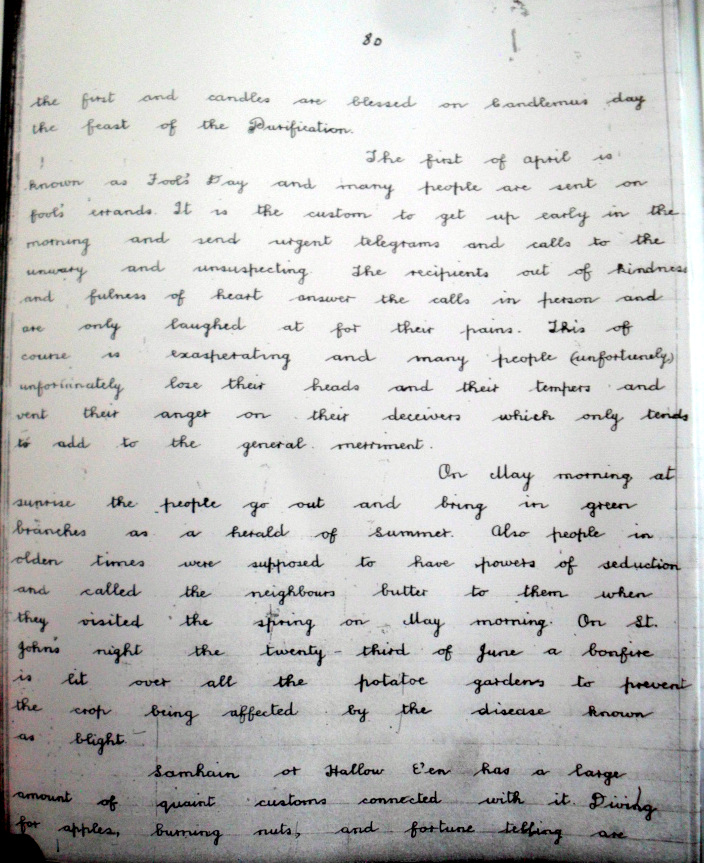 80
the first and candles are blessed on Candlemus day
the feast of the Purification.
The first of april is
known as Fool's Day and many people are sent on
fools' errands. It is the custom to get up early in the
morning and send urgent telegrams and calls to the
unwary and unsuspecting. The recipients out of kindness
and fulness of heart answer the calls in person and
are only laughed at for their pains. This of
course is exasperating and many people (unfortunely)
unfortunately lose their heads and their tempers and
vent their anger on their deceivers which only tends
to add to the general merriment.
On May morning at
sunrise the people go out and bring in green
branches as a herald of Summer. Also people in
olden times were supposed to have powers of seduction
and called the neighbours butter to them when
they visited the spring on May morning. On St.
John's night the twenty-third of June a bonfire
is lit over all the potatoe gardens to prevent
the crop being affected by the disease known
as blight.
Samhain or Hallow E'en has a large
amount of quaint customs connected with it. Diving
for apples, burning nuts, and fortune telling are